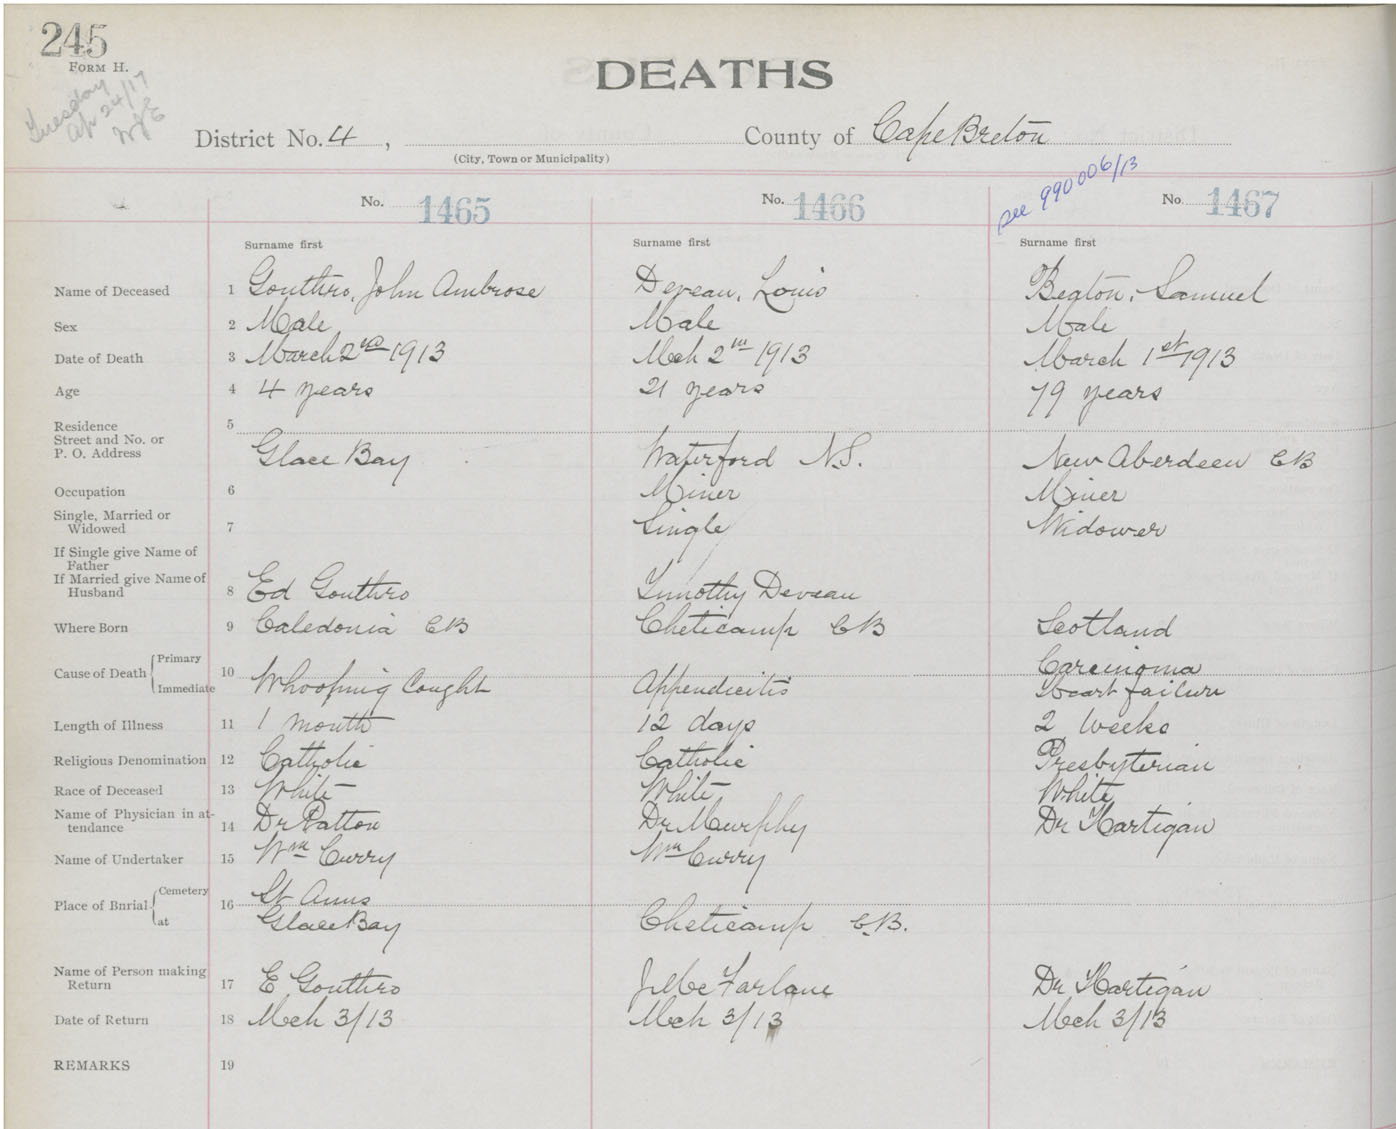 245
FORM H.
Tuesday
Ap 24/17
DEATHS
District No. 4 , County of Cape Breton
(City, Town or Municipality)
see 990006/13
No. 1465 No. 1466 No. 1467
Surname first Surname first Surname first
Name of Deceased 1 Gouthro, John Ambrose Deveau, Louis Beaton, Samuel
Sex 2 Male Male Male
Date of Death 3 March 2nd 1913 Mch 2nd 1913 March 1st 1913
Age 4 4 years 21 years 79 years
Residence 5
Street and No. or
P. O. Address Glace Bay Waterford N.S. New Aberdeen CB
Occupation 6 Miner Miner
Single, Married or
Widowed 7 Single Widower
If Single give Name of
Father
If Married give Name of
Husband 8 Ed Gouthro Timothy Deveau
Where Born 9 Caledonia CB Cheticamp CB Scotland
Cause of Death Primary 10 Carcinoma
Immediate Whooping Cought Appendicitis Heart failure
Length of Illness 11 1 month 12 days 2 weeks
Religious Denomination 12 Catholic Catholic Presbyterian
Race of Deceased 13 White White White
Name of Physician in at-
tendance 14 Dr Patton Dr Murphy Dr Hartigan
Name of Undertaker 15 Wm Curry Wm Curry
Place of Burial Cemetery 16 St Anns
at Glace Bay Cheticamp C.B.
Name of Person making
Return 17 E Gouthro J McFarlane Dr Hartigan
Date of Return 18 Mch 3/13 Mch 3/13 Mch 3/13
REMARKS 19